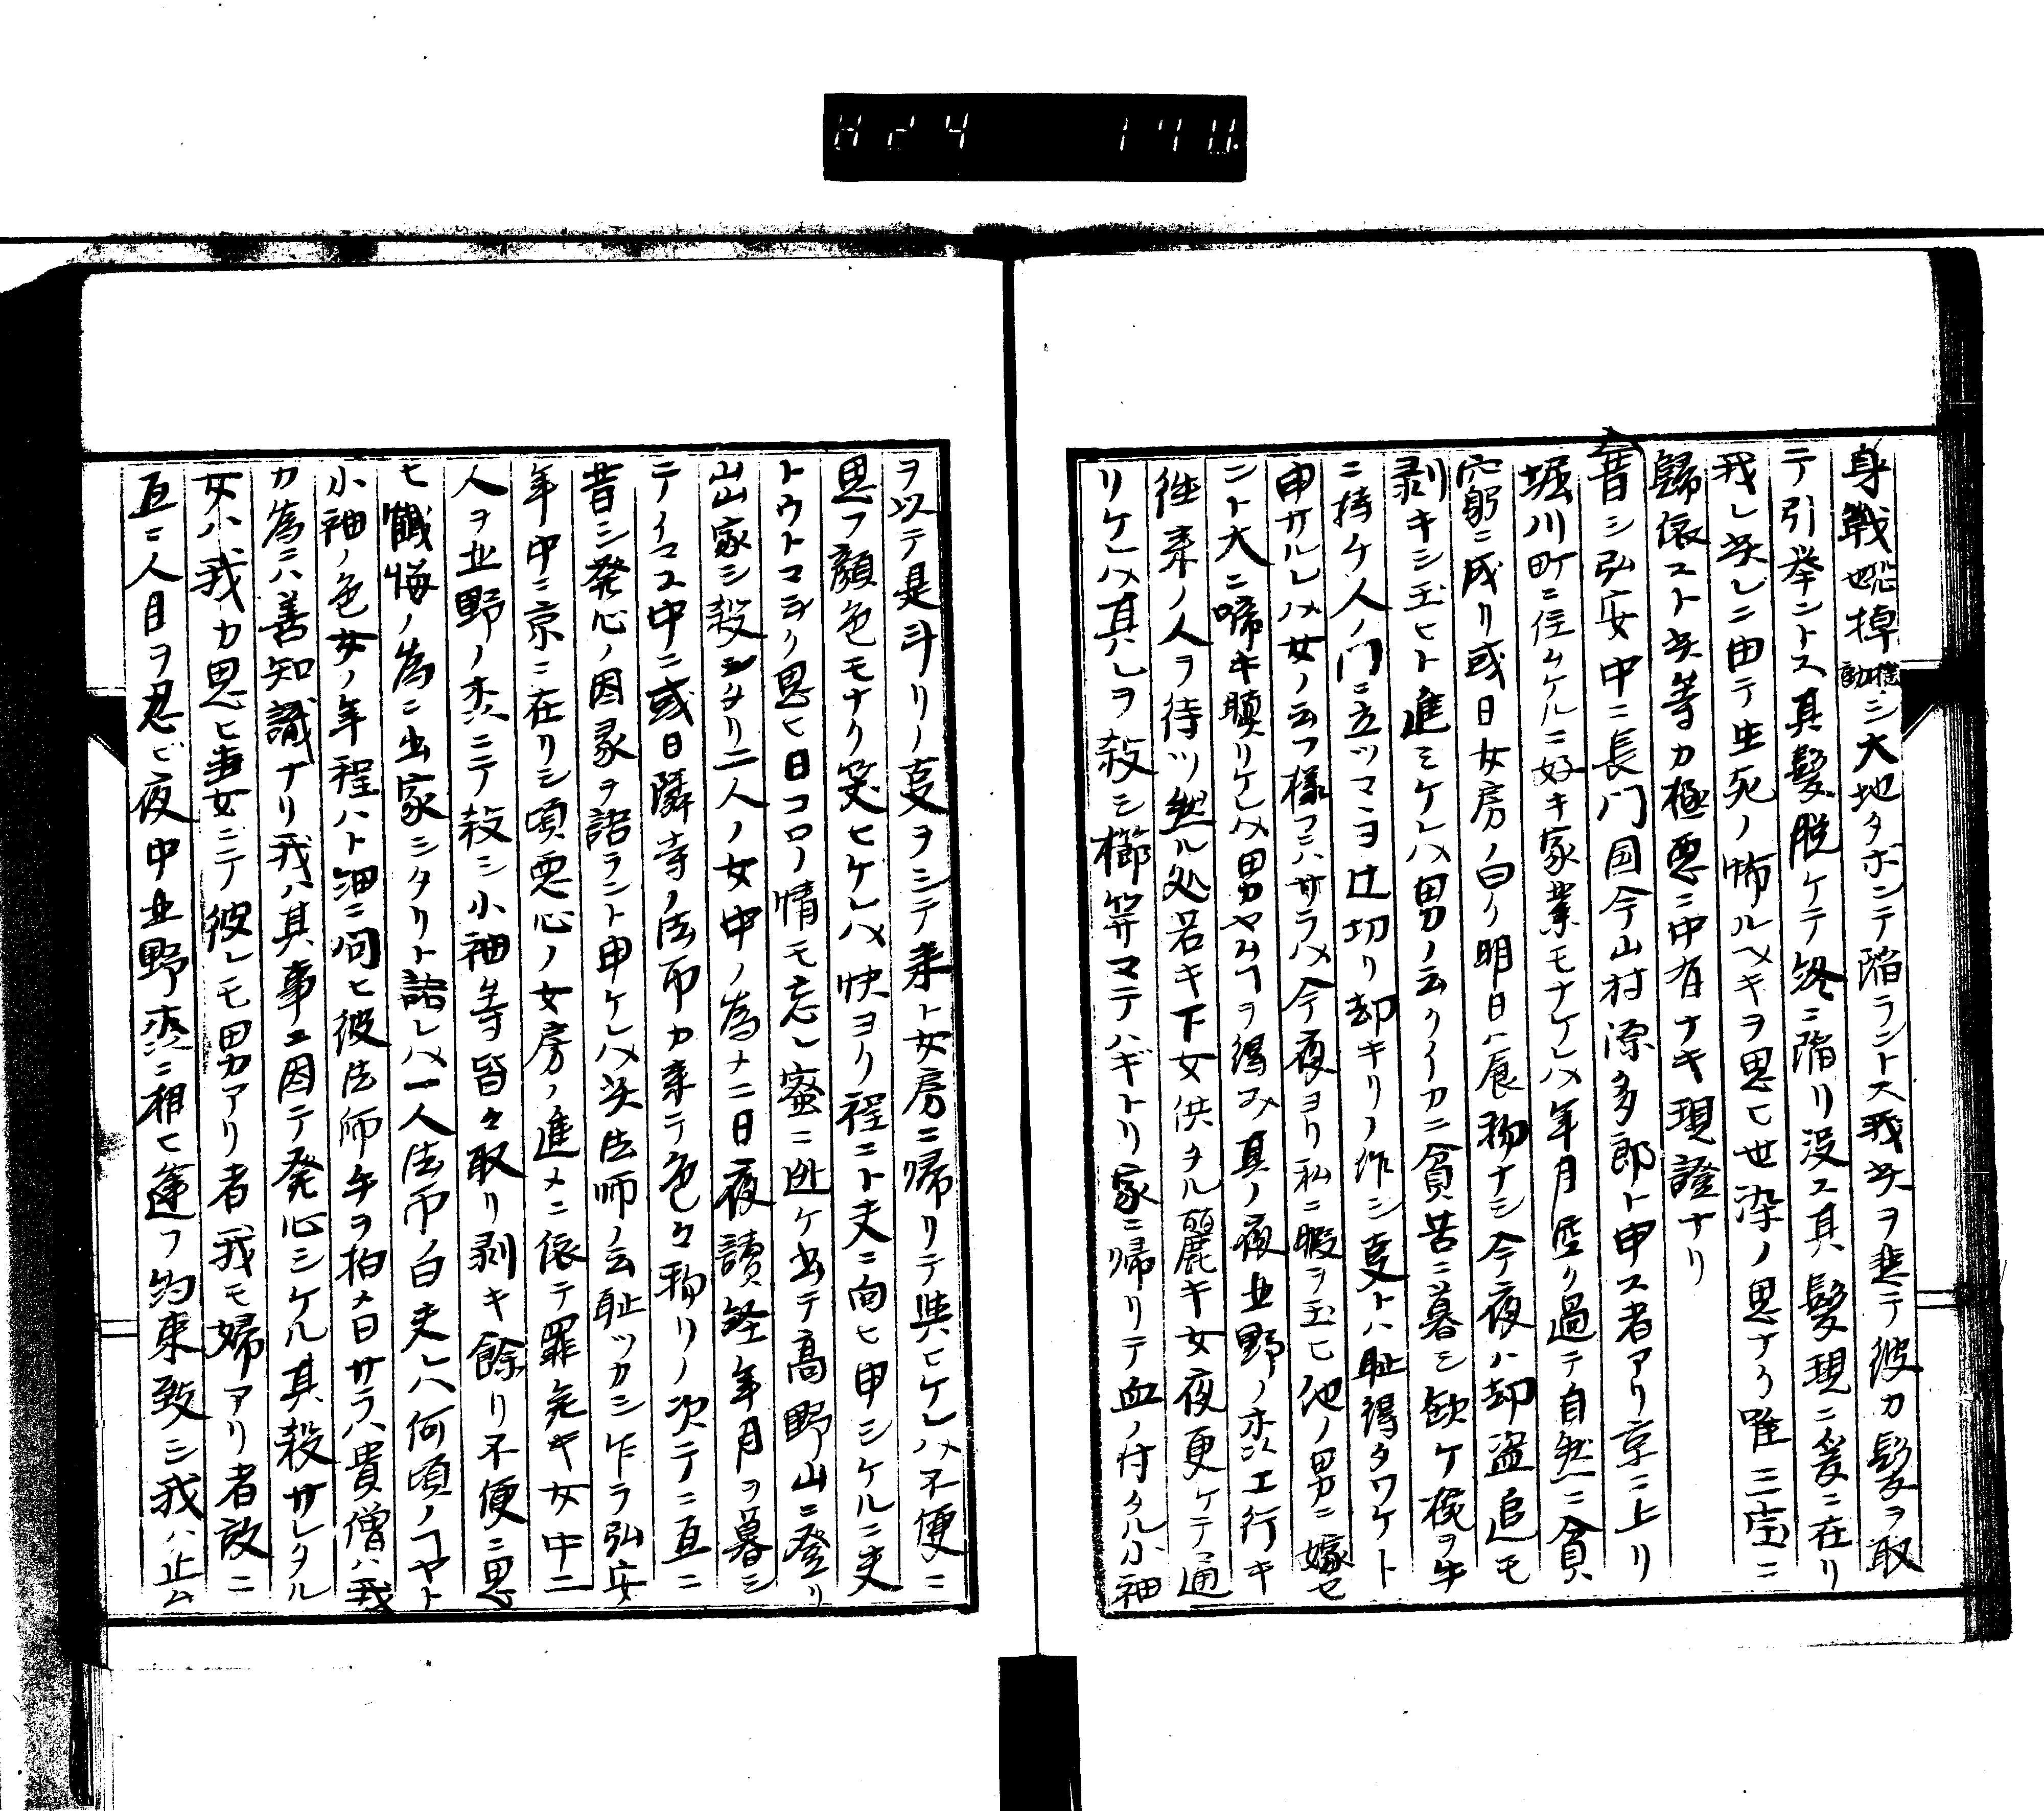 824 170
身戰恍掉動シ大地タボンテ陥ラントス我夫ヲ悲テ彼カ髮ヲ取
テ引挙ントス其髮脱ケテ終ニ陥リ没ス其髮現ニ爰ニ在リ
我レ夫レニ由テ生死ノ怖ルヘキヲ思ヒ世染ノ思ナク唯三宝ニ
歸依スト夫等カ極悪ニ中有ナキ現證ナリ
昔シ弘安中ニ長门国今山村源多郎ト申ス者アリ京ニ上リ
堀川町ニ住ケルニ好キ家業モナケレハ年月空ク過テ自然ニ貧
窮ニ成リ或日女房ノ曰ク明日ハ食物ナシ今夜ハ却盗追モ
剥キシ玉ヒト進ミケレハ男ノ云クイカニ貧苦ニ暮シ飯ケ椀ヲ手
ニ持ケ人ノ门ニ立ツマヨ辻切リ却キリノ作シ㕝トハ耻得タワケト
申サルレハ女ノ云フ様フニハサラハ今夜ヨリ私ニ暇ヲ玉ヒ他ノ男ニ嫁セ
ント大ニ啼キ瞋リケレハ男ヤムヿヲ得ス其ノ夜北野ノ森エ行キ
徃来ノ人ヲ待ツ然ル処若キ下女供タル麗キ女夜更ケテ通
リケレハ其レヲ殺シ櫛笄マテハギトリ家ニ帰リテ血ノ付タル小袖
ヲ以テ是斗リノ㕝ヲシテ来ト女房ニ帰リテ與ヒケレハ不便ニ
思フ顔色モナク笑ヒケレハ快ヨク程ニト夫ニ向ヒ申シケルニ夫
トウトマシク思ヒ日コロノ情モ忘レ蜜ニ迯ケ出テ高野山ニ登リ
出家シ殺シタリ二人ノ女中ノ為ナニ日夜讀経年月ヲ暮シ
テイマス中ニ或日隣寺ノ法师カ来テ色々物リノ次テニ互ニ
昔シ発心ノ因縁ヲ語ラント申ケレハ夫法师ノ云耻ツカシ乍ラ弘安
年中ニ京ニ在リシ頃悪心ノ女房ノ進メニ依テ罪无キ女中二
人ヲ北野ノ森ニテ殺シ小袖等皆々取リ剥キ餘リ不便ニ思
ヒ懺悔ノ為ニ出家シタリト語レハ一人法师ノ曰夫レハ何頃ノヿヤト
小袖ノ色女ノ年程ハト細ニ问ヒ彼法师手ヲ拍メ曰サラハ貴僧ハ我
カ為ニハ善知識ナリ我ハ其事エ因テ発心シケル其殺サレタル
女ハ我カ思ヒ妻女ニテ彼レモ男アリ者我モ婦アリ者故ニ
互ニ人目ヲ忍ビ夜中北野森ニ相ヒ逢フ約束致シ我ハ止ム